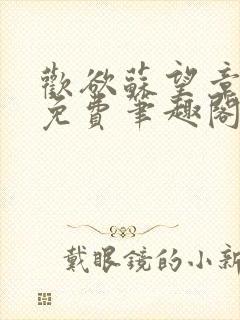 歡欲蘇望意
免費筆趣閣
戴眼鏡的小新